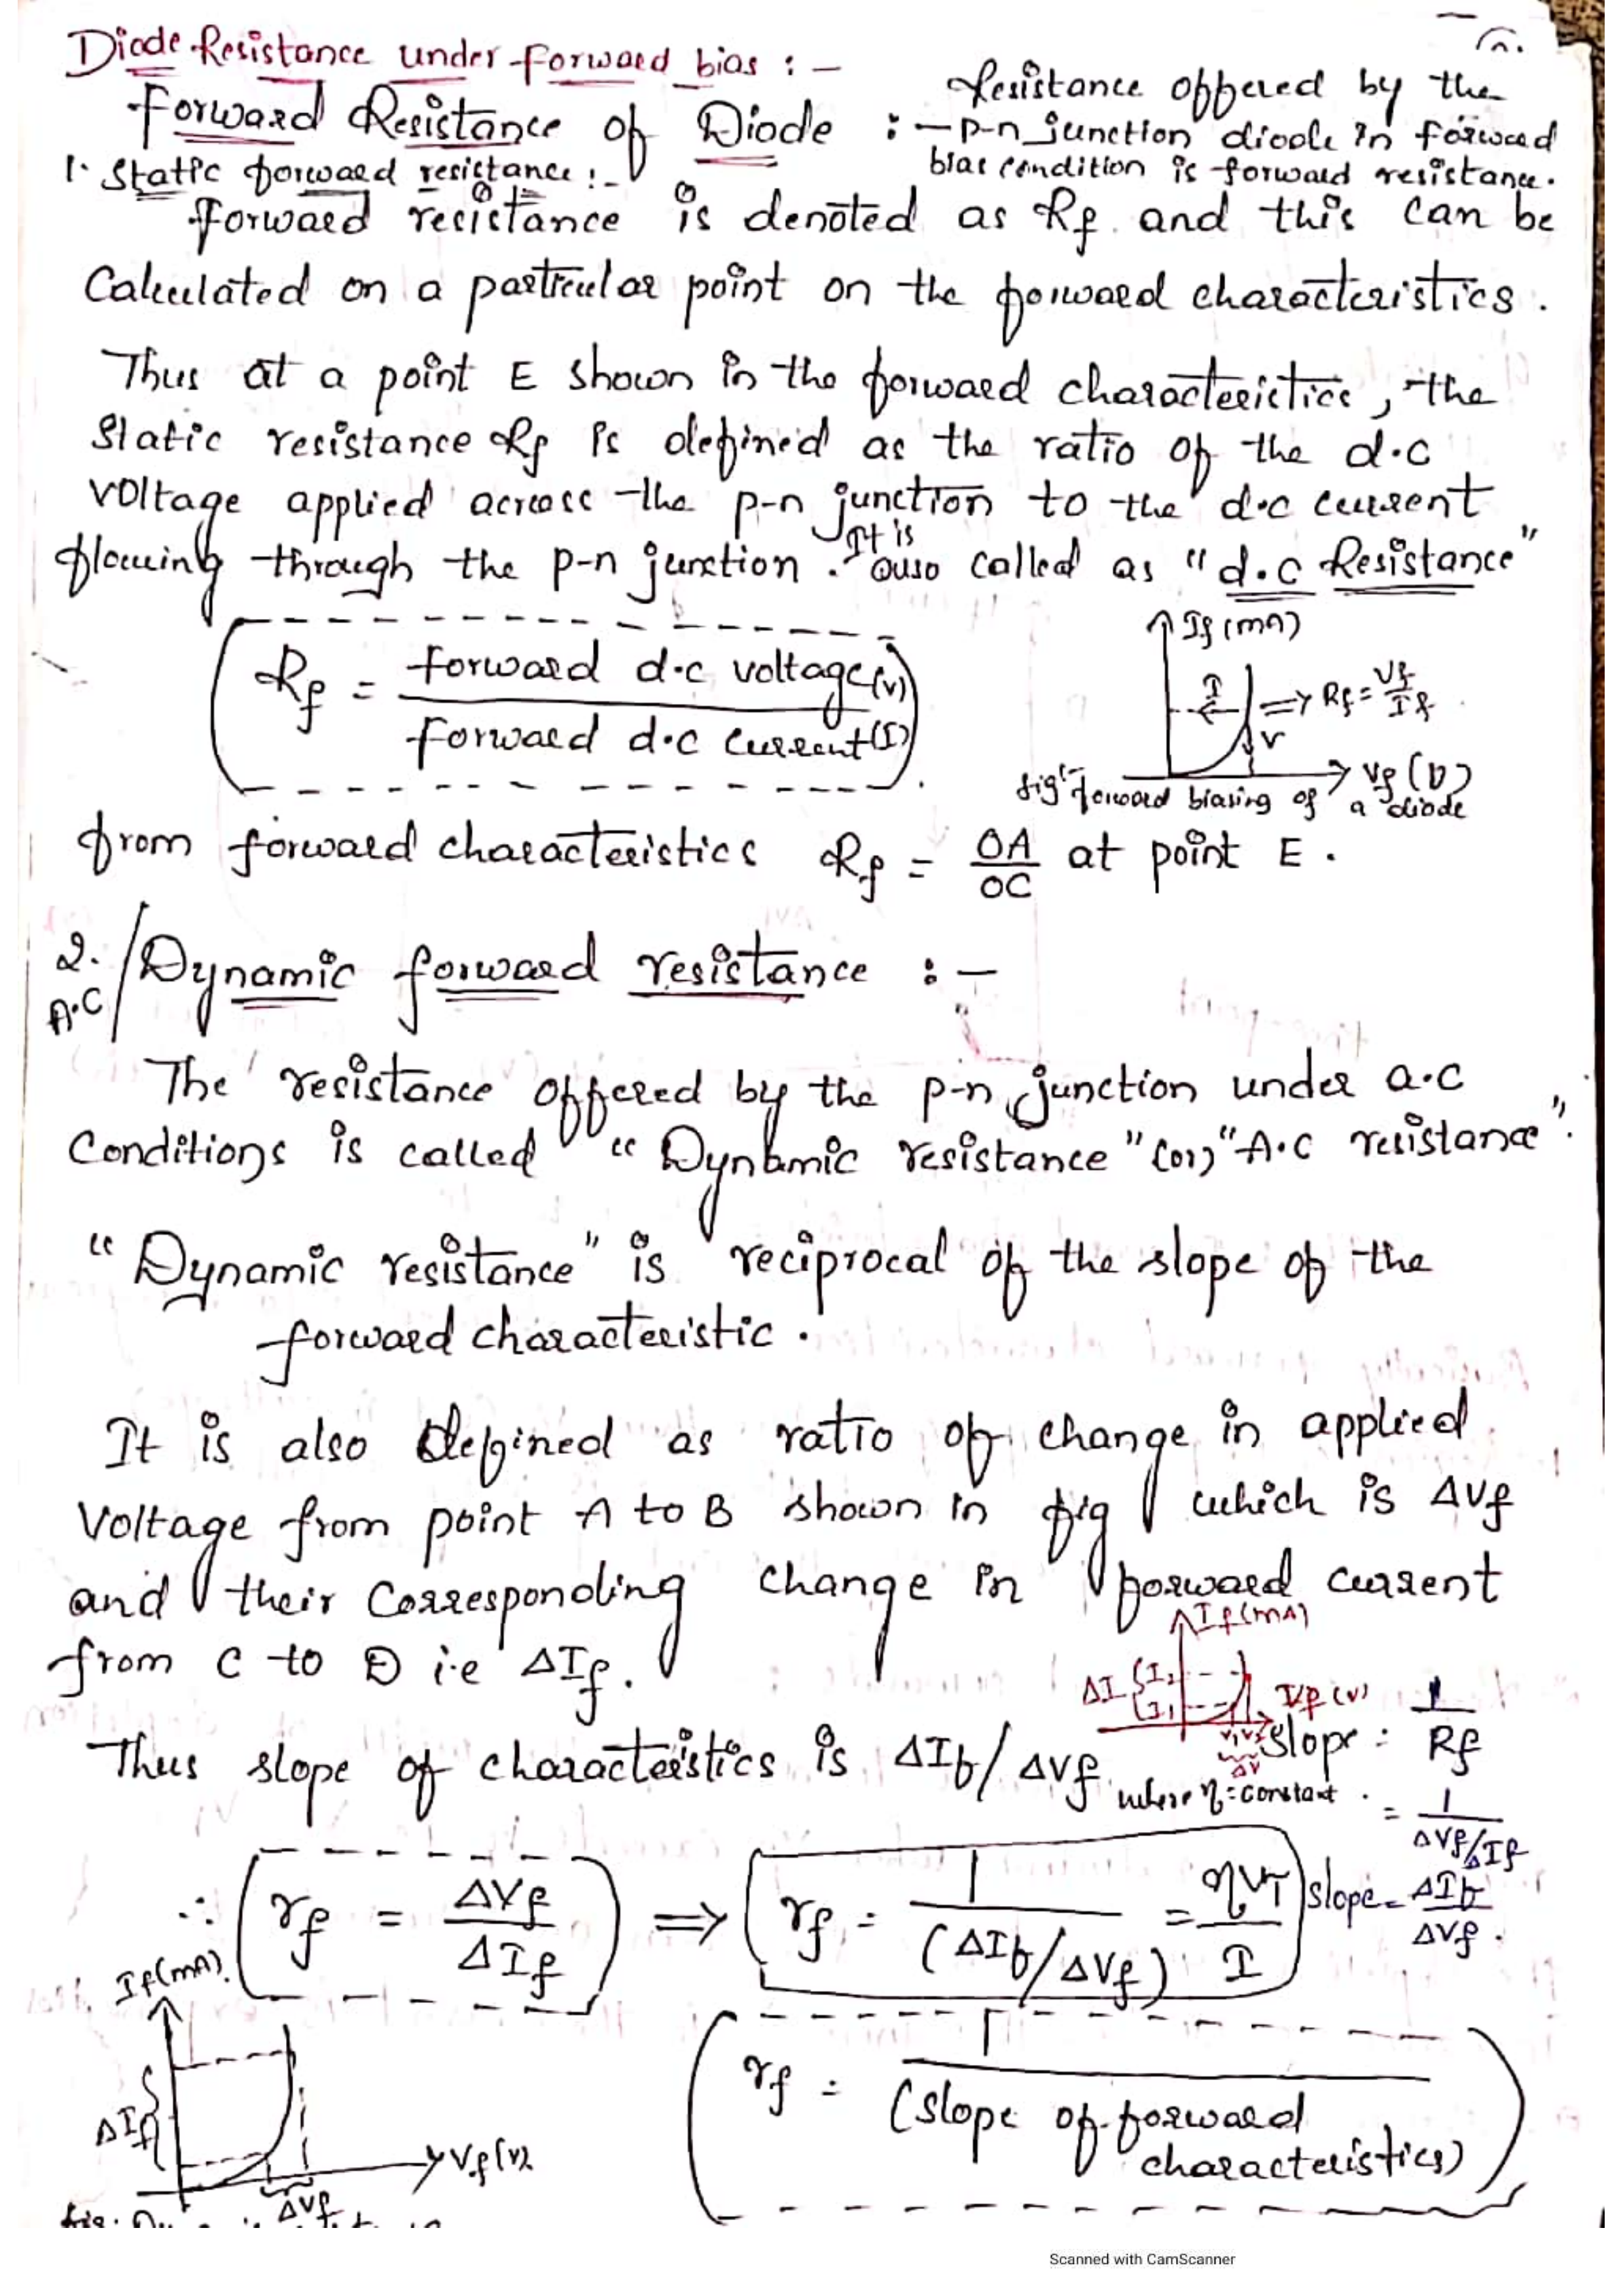 Diode Resistance under forward bias : –
Forward Resistance of Diode : – Resistance offered by the
p-n junction diode in forward
bias condition is forward resistance.
1. Static forward resistance : –
Forward resistance is denoted as Rf and this can be
Calculated on a particular point on the forward characteristics.
Thus at a point E shown in the forward characteristics, the
Static resistance Rf is defined as the ratio of the d.c
voltage applied across the p-n junction to the d.c current
flowing through the p-n junction. It is also called as "d.c Resistance"
Rf = forward d.c voltage(v) / forward d.c current(I)
If (mA)
I
⇒ Rf = Vf/If
V
Vf (V)
fig:- forward biasing of a diode
from forward characteristics Rf = OA/OC at point E.
2. A.C / Dynamic forward resistance : –
The resistance offered by the p-n junction under a.c
Conditions is called "Dynamic resistance" (or) "A.C resistance".
"Dynamic resistance" is reciprocal of the slope of the
forward characteristic.
It is also defined as ratio of change in applied
Voltage from point A to B shown in fig which is ΔVf
and their Corresponding change in forward current
from C to D i.e ΔIf.
If (mA)
ΔI { I2 I1
Vf (v)
V1 V2
ΔV
Thus slope of characteristics is ΔIf/ΔVf
where η = constant.
slope = 1/Rf
= 1/(ΔVf/ΔIf)
slope = ΔIf/ΔVf.
∴ rf = ΔVf/ΔIf ⇒ rf = 1/(ΔIf/ΔVf) = ηVT/I
If (mA)
ΔIf
Vf (v).
ΔVf
rf = 1/(slope of forward
characteristics)
fig.
Scanned with CamScanner